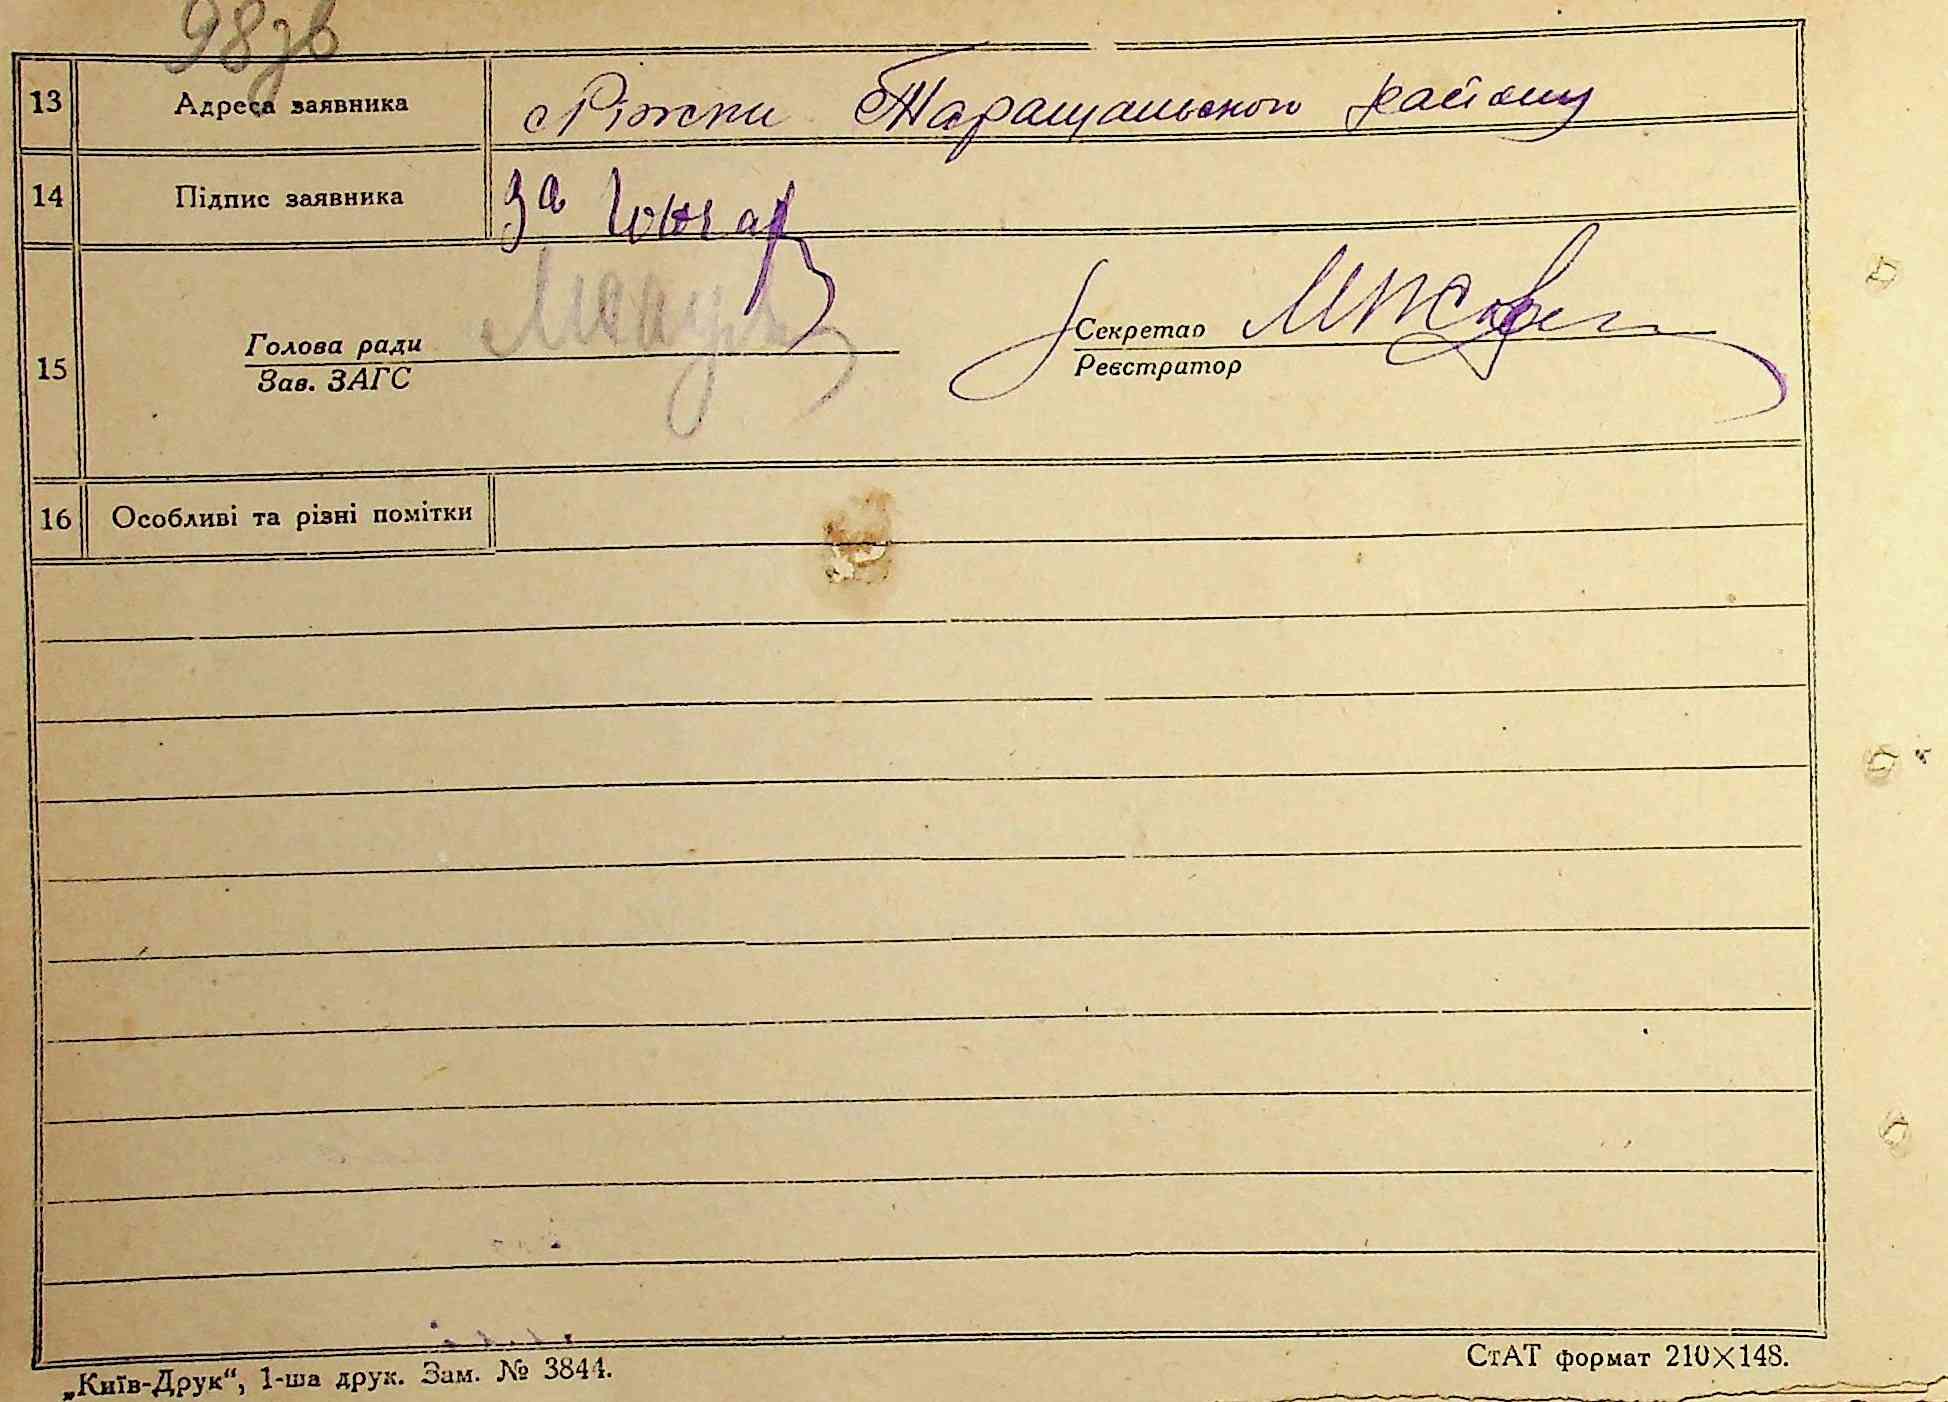 98зв
13 Адреса заявника с Ріжки Таращанського району
14 Підпис заявника За Гончар
15 Голова ради Секретар
Зав. ЗАГС Реєстратор
16 Особливі та різні помітки
„Київ-Друк“, 1-ша друк. Зам. № 3844. СтАТ формат 210×148.